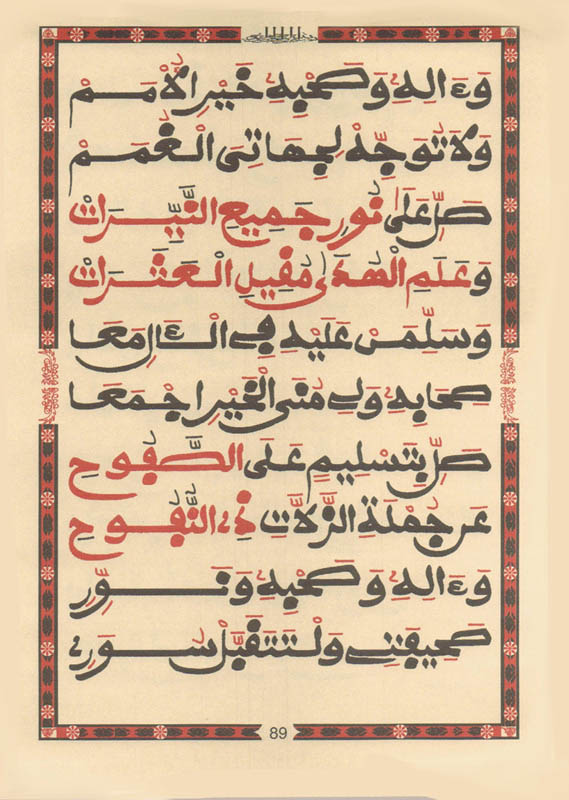 وَءَالِهِ وَصَحْبِهِ خَيْرِ الْأُمَمْ
وَلَا تُوَجِّهْ لِجِهَاتِيَ الْغُمَمْ
صَلِّ عَلَى نُورِ جَمِيعِ النَّيِّرَاتْ
وَعَلَمِ الْهُدَى مُقِيلِ الْعَثَرَاتْ
وَسَلِّمَنْ عَلَيْهِ فِي الْءَالِ مَعَا
صِحَابِهِ وَلِي مُنَى الْخَيْرِ اجْمَعَا
صَلِّ بِتَسْلِيمٍ عَلَى الصَّفُوحِ
عَنْ جُمْلَةِ الزَّلَّاتِ ذِي النُّفُوحِ
وَءَالِهِ وَصَحْبِهِ وَنَوِّرِ
صَحِيفَتِي وَلْتَتَقَبَّلْ سُوَرِي
89